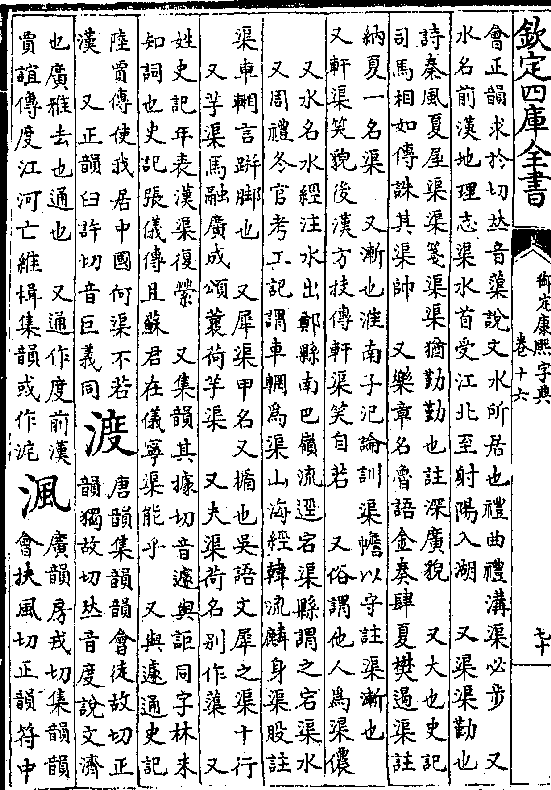 欽定四庫全書
御定康熙字典
卷十六
七十
會正韻求於切𠀤音蕖說文水所居也禮曲禮溝渠必步 又
水名前漢地理志渠水首受江北至射陽入湖 又渠渠勤也
詩秦風夏屋渠渠箋渠渠猶勤勤也註深廣貌 又大也史記
司馬相如傳誅其渠帥 又樂章名魯語金奏肆夏樊遏渠註
納夏一名渠 又漸也淮南子氾論訓渠幨以守註渠漸也
又軒渠笑貌後漢方技傳軒渠笑自若 又俗謂他人爲渠儂
又水名水經注水出鄭縣南巴嶺流逕宕渠縣謂之宕渠水
又周禮冬官考工記謂車輞爲渠山海經韓流麟身渠股註
渠車輞言跰脚也 又犀渠甲名又楯也吳語文犀之渠十行
又芋渠馬融廣成頌蘘荷芋渠 又夫渠荷名別作蕖 又
姓史記年表漢渠復絫 又集韻其據切音遽與詎同字林未
知詞也史記張儀傳且蘇君在儀寧渠能乎 又與遽通史記
陸賈傳使我居中國何渠不若
漢 又正韻臼許切音巨義同
渡
唐韻集韻韻會徒故切正
韻獨故切𠀤音度說文濟
也廣雅去也通也 又通作度前漢
賈誼傳度江河亡維楫集韻或作
渢
廣韻房戎切集韻韻
會扶風切正韻符中